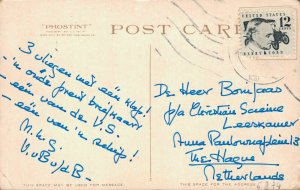 "PROSTINT"
POST CARD
UNITED STATES
12
HENRY FORD
3 vliegen met één klap!
- 'n oude prentbriefkaart
- één van de V.S.
- één van
De Heer Bomfaas
p/a Christian
Leeskamer
Anna Paulownaplein 13
The Hague
Netherlands
THIS SPACE MAY BE USED FOR MESSAGE.
THIS SPACE FOR ADDRESS.